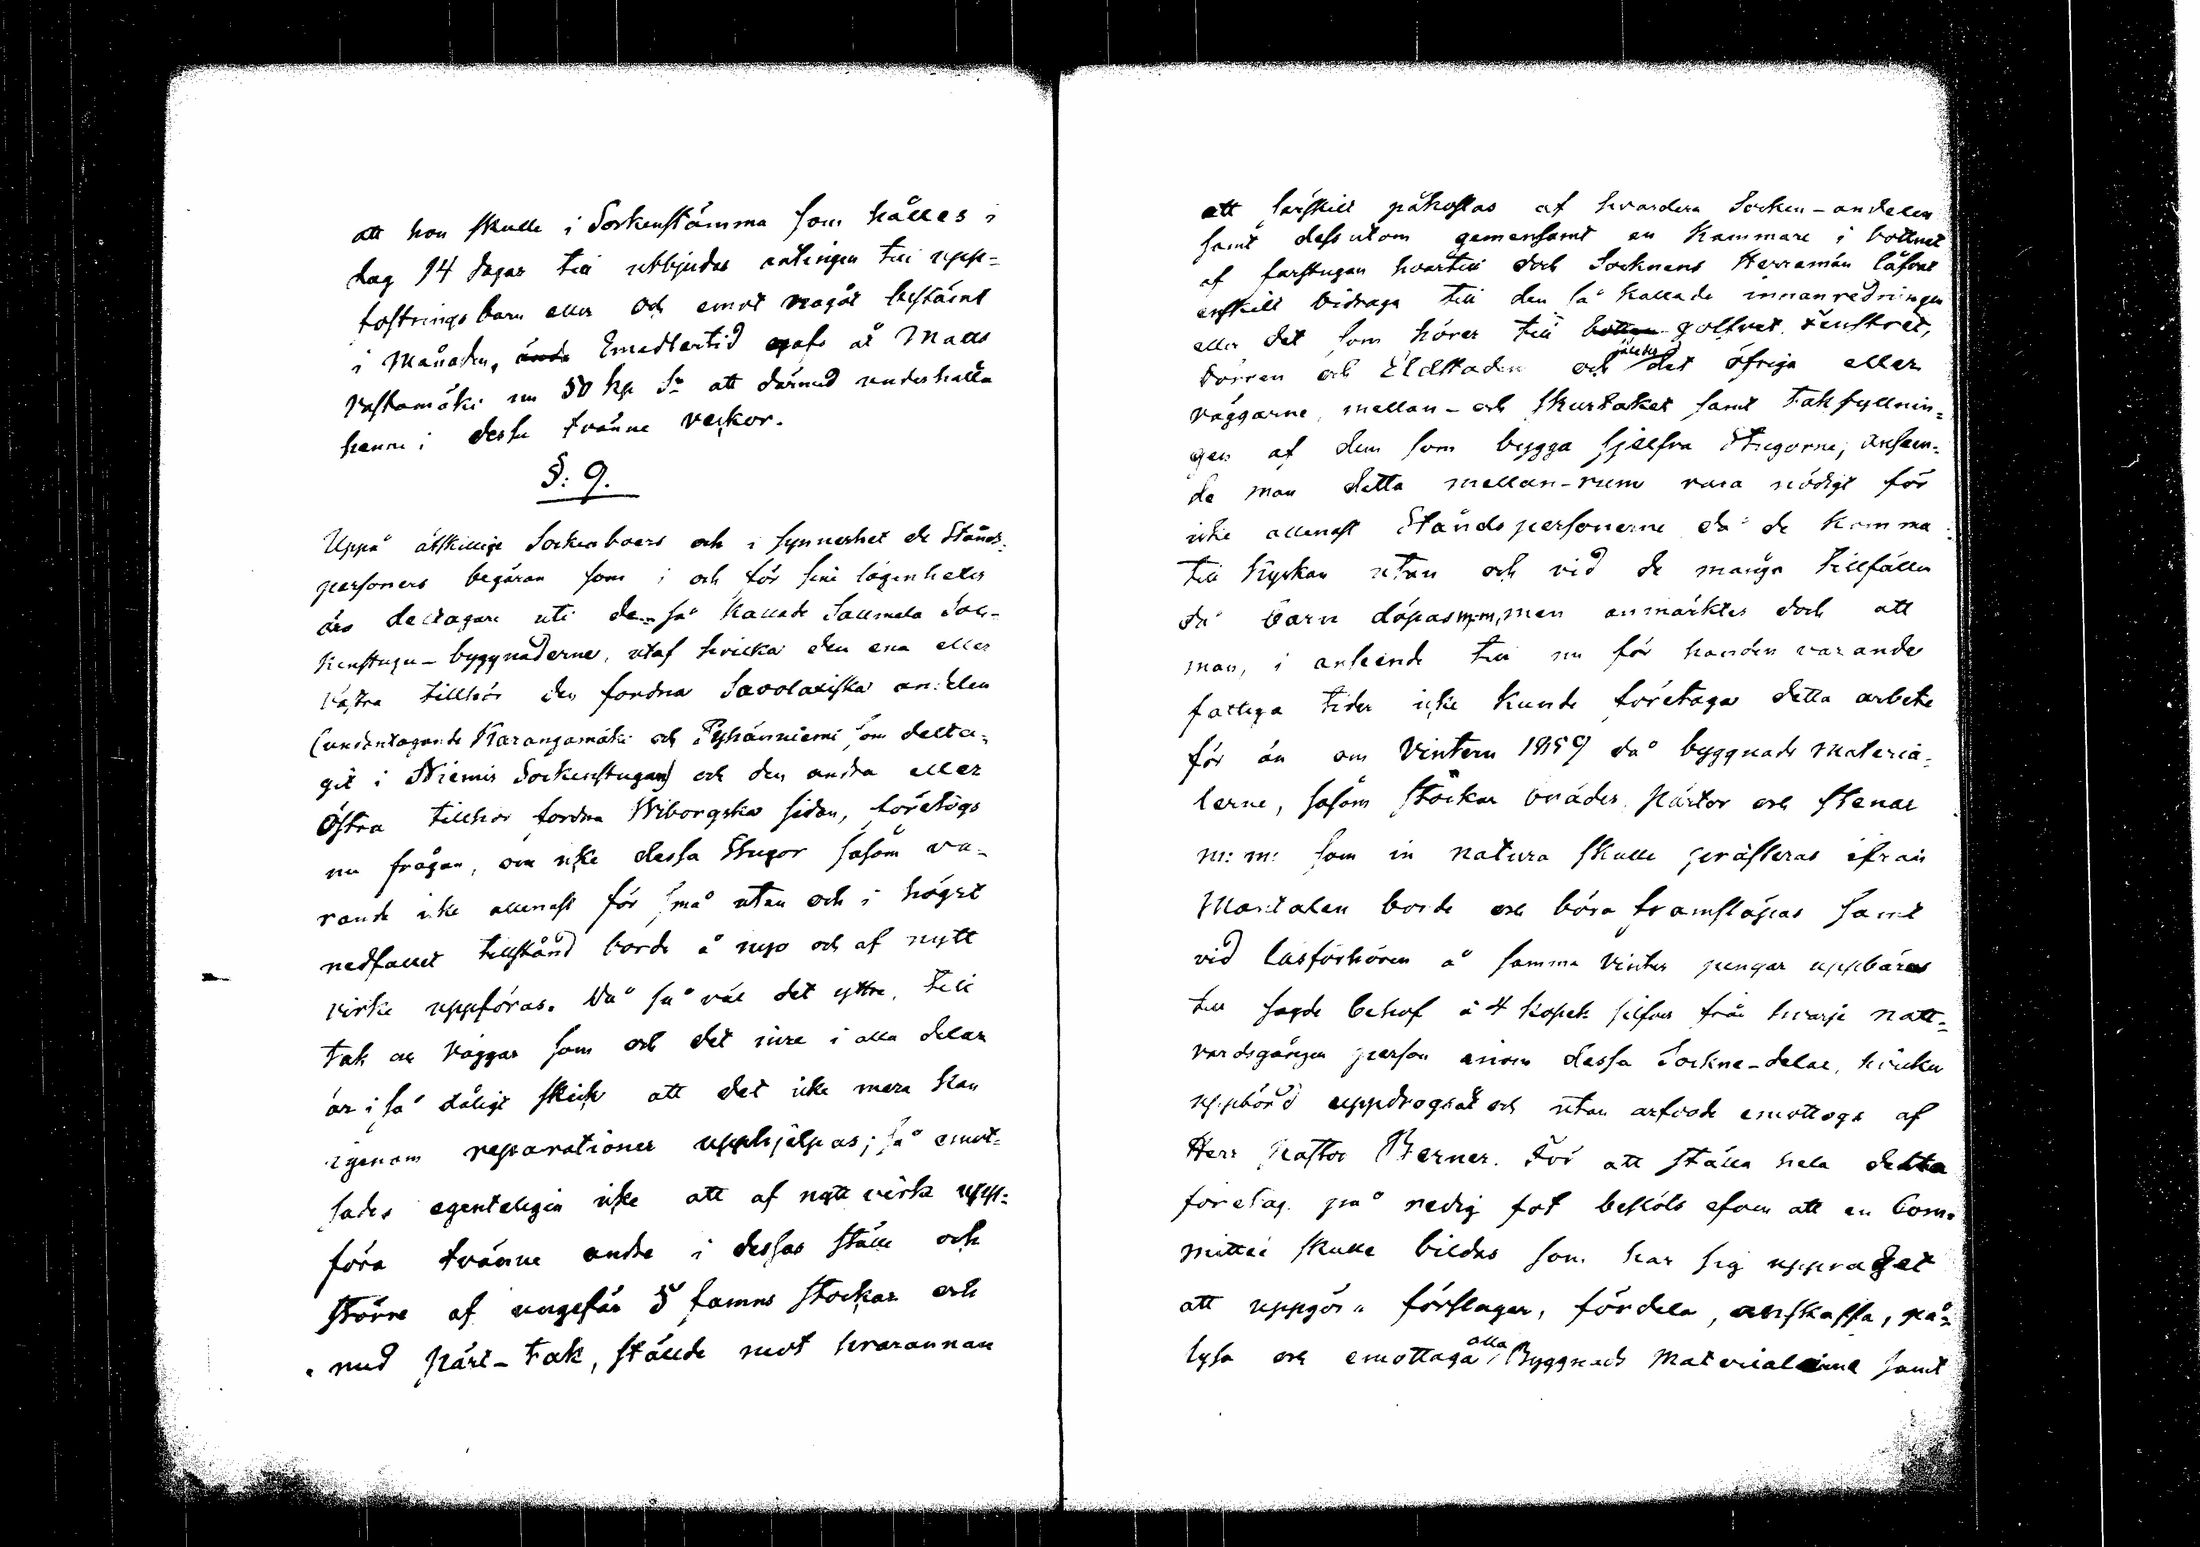 att hon skulle i Sockenstämma som hålles i
dag 14 dagar till utbjudas antingen till upp=
fostringsbarn eller och emot något bestämt
i Månaden, ända Emedlertid gafs åt Matts
Rastamäki nu 50 kp Sr att därmed underhålla
henne i dessa tvänne veckor.
§: 9.
Uppå åtskillige Sockenboers och i synnerhet de Stånds=
personers begäran som i och för sine lägenheter
äro deltagare uti de så kallade Sallmela Soc-
kenstugu-byggnaderne, utaf hvilka den ena eller
västra tillhör den fordna Savolaxiska andelen
(undantagande Karangamäki och Pyhänniemi som delta=
git i Niemis Sockenstugan) och den andra eller
Östra tillhör fordna Wiborgska sidan, företogs
nu frågan, om icke dessa Stugor såsom va-
rande icke allenast för små utan och i högst
nedfallet tillstånd borde å nyo och af nytt
virke uppföras. Då så väl det yttre, till
tak och väggar som och det inre i alla delar
är i så dåligt skick att det icke mera kan
igenom reparationer upphjelpas; så emot=
sades egenteligen icke att af nytt virke upp=
föra tvänne andra i dessas ställe och
större af ungefär 5 famns stockar och
med pärt-tak, ställde mot hvarannan
att särskilt påkostas af hvardera Socken-andelen
samt dessutom gemensamt en Kammare i bottnet
af farstugan hvartill dock Socknens Herremän låfvat
enskilt bidraga till den så kallade innanredningen
eller det som hörer till botten golfvet, fenstret,
dörren och Eldstaden och det öfriga eller
väggarne, mellan- och skurtaket samt takfyllnin=
gen af dem som bygga sjelfva Stugorne; ansen=
de man detta mellan-rum vara nödigt för
icke allenast Ståndspersonerne då de komma
till Kyrkan utan och vid de många tillfällen
då barn döpas m:m, men anmärktes dock att
man, i anseende till nu för handen varande
fattiga tider icke kunde företaga detta arbete
för än om Vintern 1859 då byggnads materia=
lerne, såsom stockar bräder, pärtor och stenar
m: m: som in natura skulle præsteras ifrån
Mantalen borde och böra framsläpas samt
vid läsförhören å samma Vinter pengar uppbäras
till sagde behof à 4 kopek silfver från hvarje natt=
vardsgången person inom dessa Sockne-delar, hvilken
uppbörd uppdrogs åt och utan arfvode emottogs af
Herr Pastor Berner. För att ställa hela detta
företag på redig fot beslöts äfven att en Com=
mitteé skulle bildas som har sig uppdraget
att uppgöra förslager, fördela, anskaffa, på=
lysa och emottaga alla Byggnads Materialerne samt